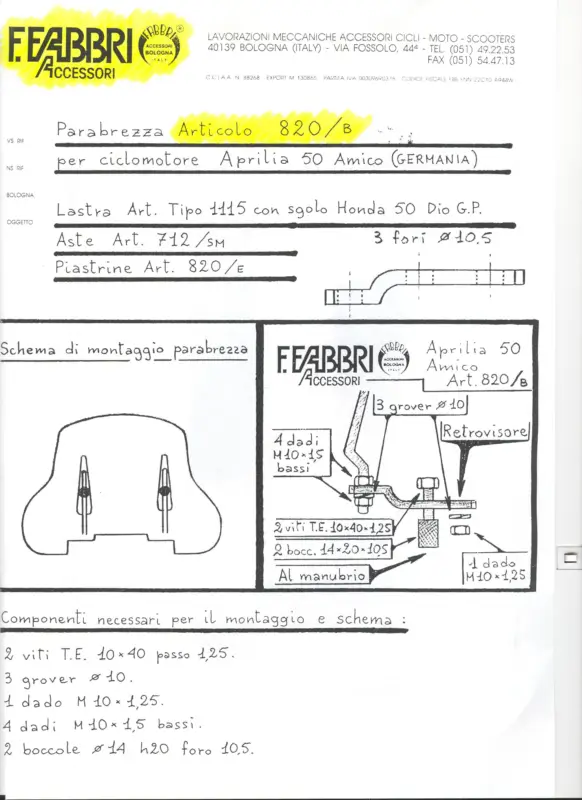 F.FABBRI
ACCESSORI
FABBRI
ACCESSORI
BOLOGNA
ITALY
LAVORAZIONI MECCANICHE ACCESSORI CICLI - MOTO - SCOOTERS
40139 BOLOGNA (ITALY) - VIA FOSSOLO, 44ª - TEL. (051) 49.22.53
FAX (051) 54.47.13
VS. RIF.
NS. RIF.
BOLOGNA,
OGGETTO
Parabrezza Articolo 820/B
per ciclomotore Aprilia 50 Amico (GERMANIA)
Lastra Art. Tipo 1115 con sgolo Honda 50 Dio G.P.
Aste Art. 712/SM
3 fori ø 10.5
Piastrine Art. 820/E
Schema di montaggio parabrezza
F.FABBRI
ACCESSORI
FABBRI
ACCESSORI
BOLOGNA
Aprilia 50
Amico
Art. 820/B
3 grover ø 10
4 dadi
M10×1,5
bassi
Retrovisore
2 viti T.E. 10×40×1,25
2 bocc. 14×20×10,5
Al manubrio
1 dado
M10×1,25
Componenti necessari per il montaggio e schema :
2 viti T.E. 10×40 passo 1,25.
3 grover ø 10.
1 dado M 10×1,25.
4 dadi M 10×1,5 bassi.
2 boccole ø 14 h20 foro 10,5.